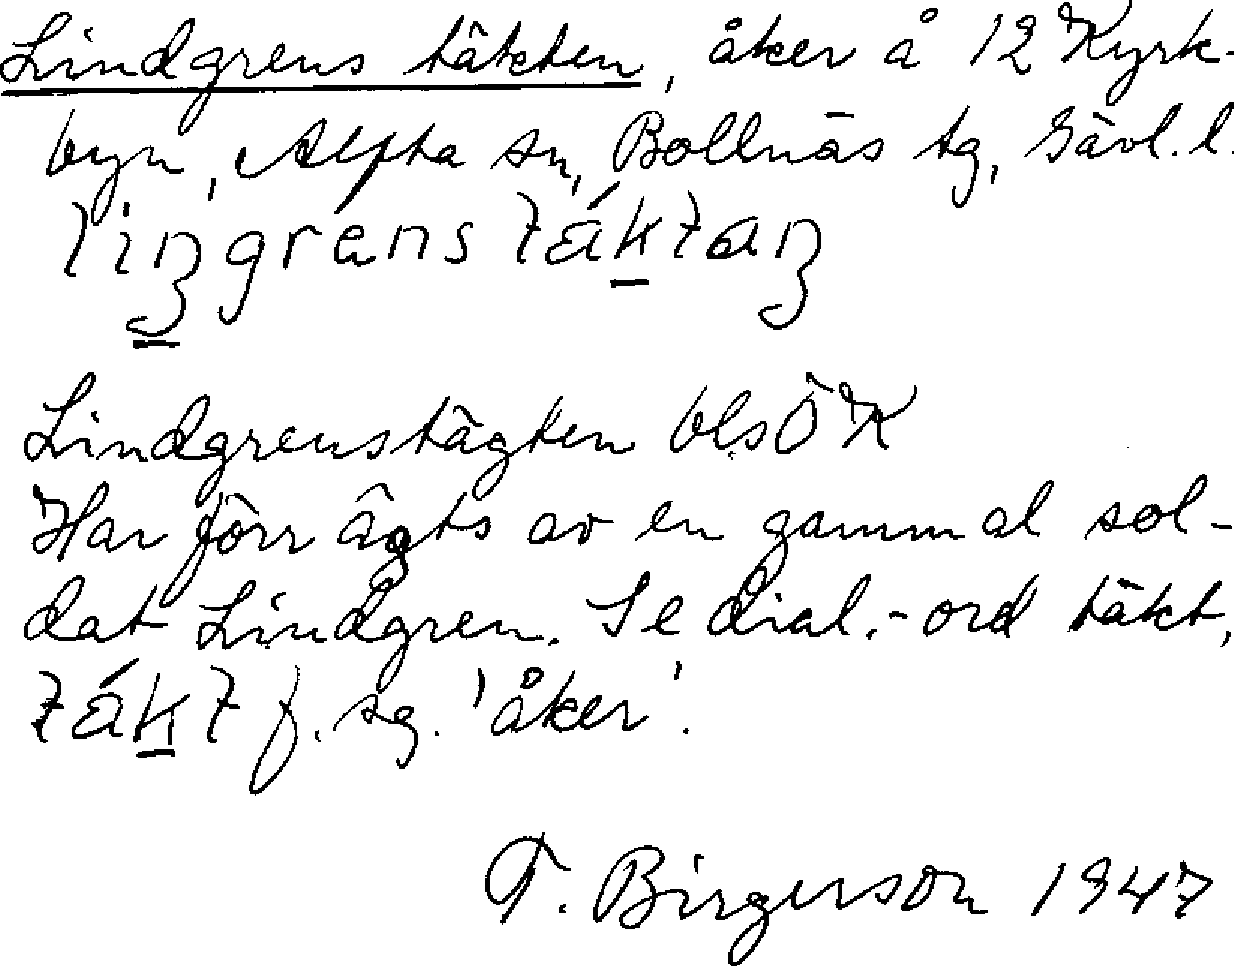 Lindgrens täkten, åker å 12 Kyrk-
byn, Alfta sn, Bollnäs tg, Gävl. l.
liŋgrens täktaŋ
Lindgrenstägten blsÖK
Har förr ägts av en gammal sol-
dat Lindgren. Se dial.-ord täkt,
täkt f. sg. 'åker'.
T. Birgerson 1947